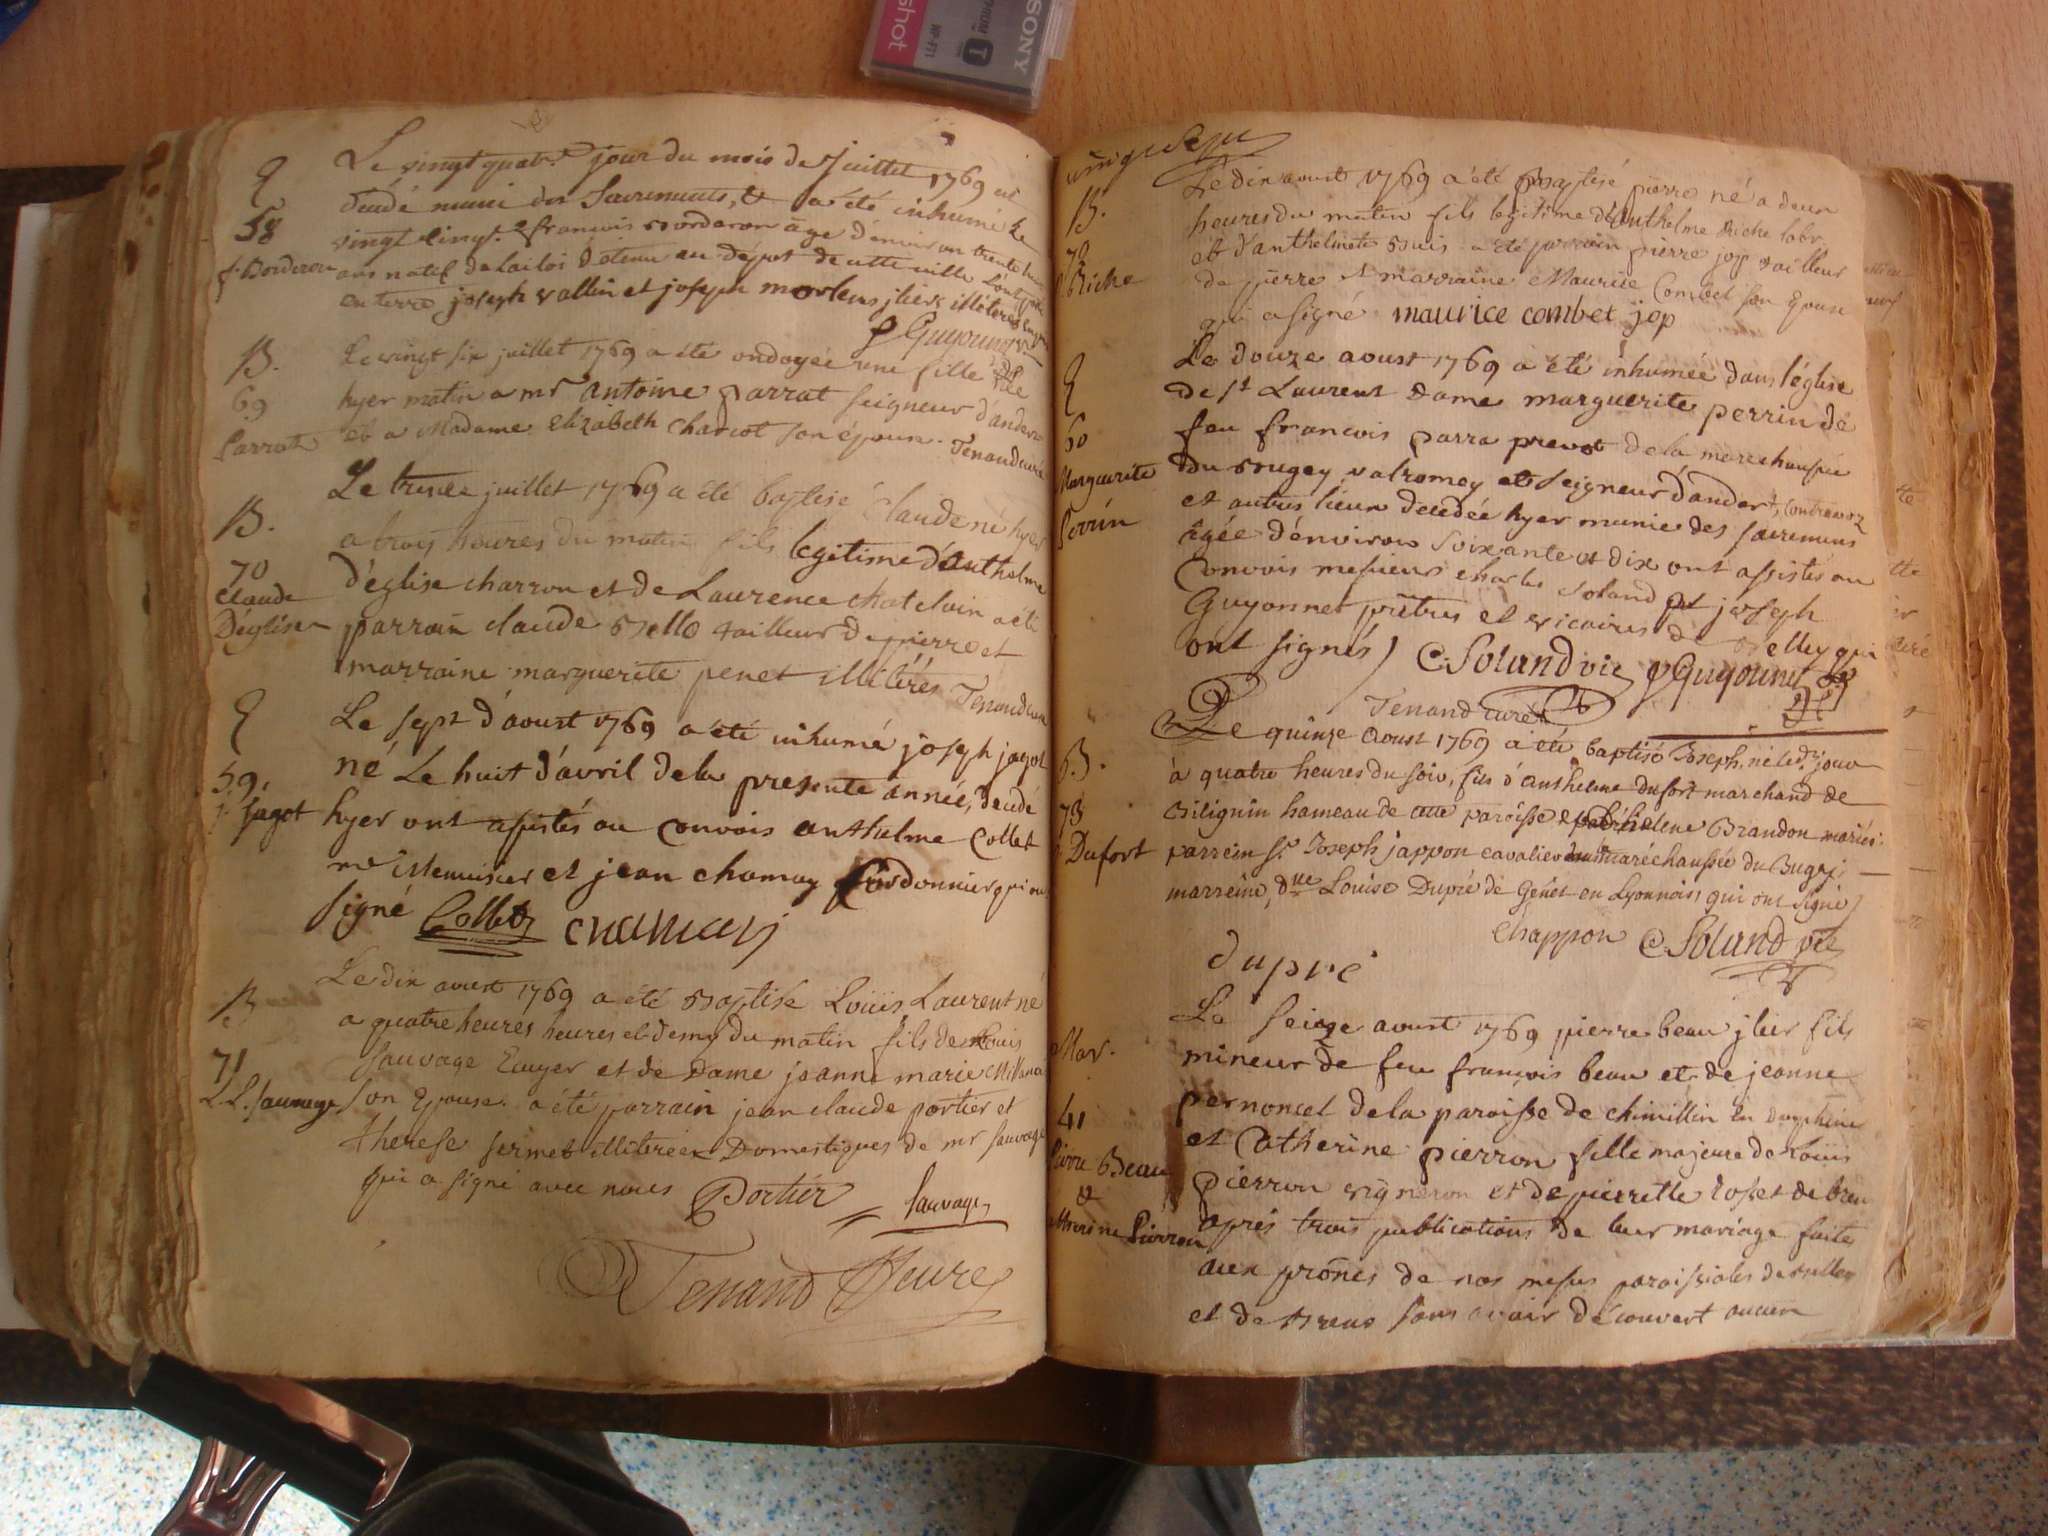 SONY
shot
Le vingt quatre jour du mois de juillet 1769 est
décédé muni des Sacrements, et a été inhumé le
vingt cinq. françois Borderon agé d'environ trente
ans natif de détenu au dépot de cette ville
enterré joseph vallin et joseph morlens jliers illiterés
P Guyounet
E
58
f. Borderon
Le vingt six juillet 1769 a été ondoyée une fille née
hyer matin a mr antoine parrat seigneur d'andert
et a Madame Elizabeth Charcot son épouse. Tenand curé
B.
69
Parrat
Le trente juillet 1769 a été baptisé Claude né hyer
a trois heures du matin fils legitime d'anthelme
d'églisse charron et de Laurence chatelain a été
parrain claude Bello tailleur de pierre et
marraine marguerite penet illitérés Tenand curé
B.
70
Claude
D'églisse
Le sept d'aoust 1769 a été inhumé joseph jagot
né Le huit d'avril de la presente année, décédé
hyer ont assistés au convois anthelme Collet
mr Menuisier et jean chamay Cordonnier qui ont
signé Collet chamay
E
59.
j. jagot
Le dix aoust 1769 a été Baptisé Loüis Laurent né
a quatre heures heures et demy du matin fils de Loüis
sauvage Ecuyer et de Dame jeanne marie Millanci
son Epouse. a été parrain jean claude portier et
therese sermet illiterée Domestiques de mr sauvage
qui a signé avec nous Portier sauvage
Tenand Cure
B.
71
L.L. Sauvage
vingt sept
Le dix aoust 1769 a été Baptisé pierre né a deux
heures du matin fils legitime d'Anthelme Riche labr.
et d'anthelmete Buis a été parrain pierre jop tailleur
de pierre et marraine Maurice Combet son Epouse
qui a signé maurice combet jop
B.
72
P. Riche
Le douze aoust 1769 a été inhumée dans l'église
de St Laurent Dame marguerite perrin de
feu francois parra prevot de la marechaussée
du Bugey valromey et seigneur d'andert, Contrevoz
et autres lieux decedée hyer munie des sacremens
âgée d'environ soixante et dix ont assistés au
Convois messieurs charles soland et joseph
Guyonnet prêtres et vicaires de Belley qui
ont signés) C. Soland vic J Guyounet
Tenand curé
E
60
Marguerite
Perrin
Le quinze Aoust 1769 a été baptisé Joseph, né led. jour
à quatre heures du soir, fils d'anthelme dufort marchand de
Bilignin hameau de cette paroisse et d'hélene Brandon mariés.
parrein Sr. Joseph jappon cavalier de la maréchaussée du Bugey;
marreine, dlle Louise Dupré de Genet en Lyonnois qui ont signé)
Chappon C. Soland vic
dupré
B.
73
J. Dufort
Le seize aoust 1769 pierre beau jlier fils
mineur de feu françois beau et de jeanne
pernoncel de la paroisse de chimillin En dauphiné
et Catherine pierron fille majeure de Loüis
pierron vigneron et de pierrette rosset de bren
après trois publications de leur mariage faite
aux prônes de nos messes paroissiales de Belley
et de Brens sans avoir découvert aucun
Mar.
41
Pierre Beau
&
Catherine Pierron